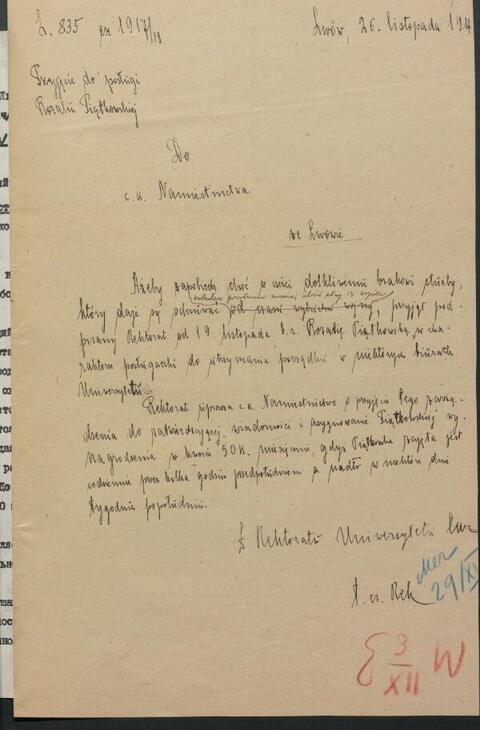 L. 835 ex 1917/18
Lwów, 26. listopada 191
Przyjęcie do posługi
Rozalii Piątkowskiej
Do
c. k. Namiestnictwa
we Lwowie
Ażeby zapobiedz choć w części dotkliwemu brakowi służby,
który daje się odczuwać od czasu wybuchu wojny, przyjął pod-
pisany Rektorat od 19 listopada b. r. Rozalię Piątkowską w cha-
rakterze posługaczki do utrzymania porządku w niektórych biurach
Uniwersytetu.
Rektorat uprasza c. k. Namiestnictwo o przyjęcie tego zarzą-
dzenia do zatwierdzającej wiadomości i asygnowanie Piątkowskiej wy-
nagrodzenia w kwocie 50 K. miesięcznie, gdyż Piątkowska zajęta jest
codziennie przez kilka godzin przedpołudniem a nadto w niektóre dnie
tygodnia popołudniu.
Z Rektoratu Uniwersytetu
t. cz. Rek
29/XI
3
XII